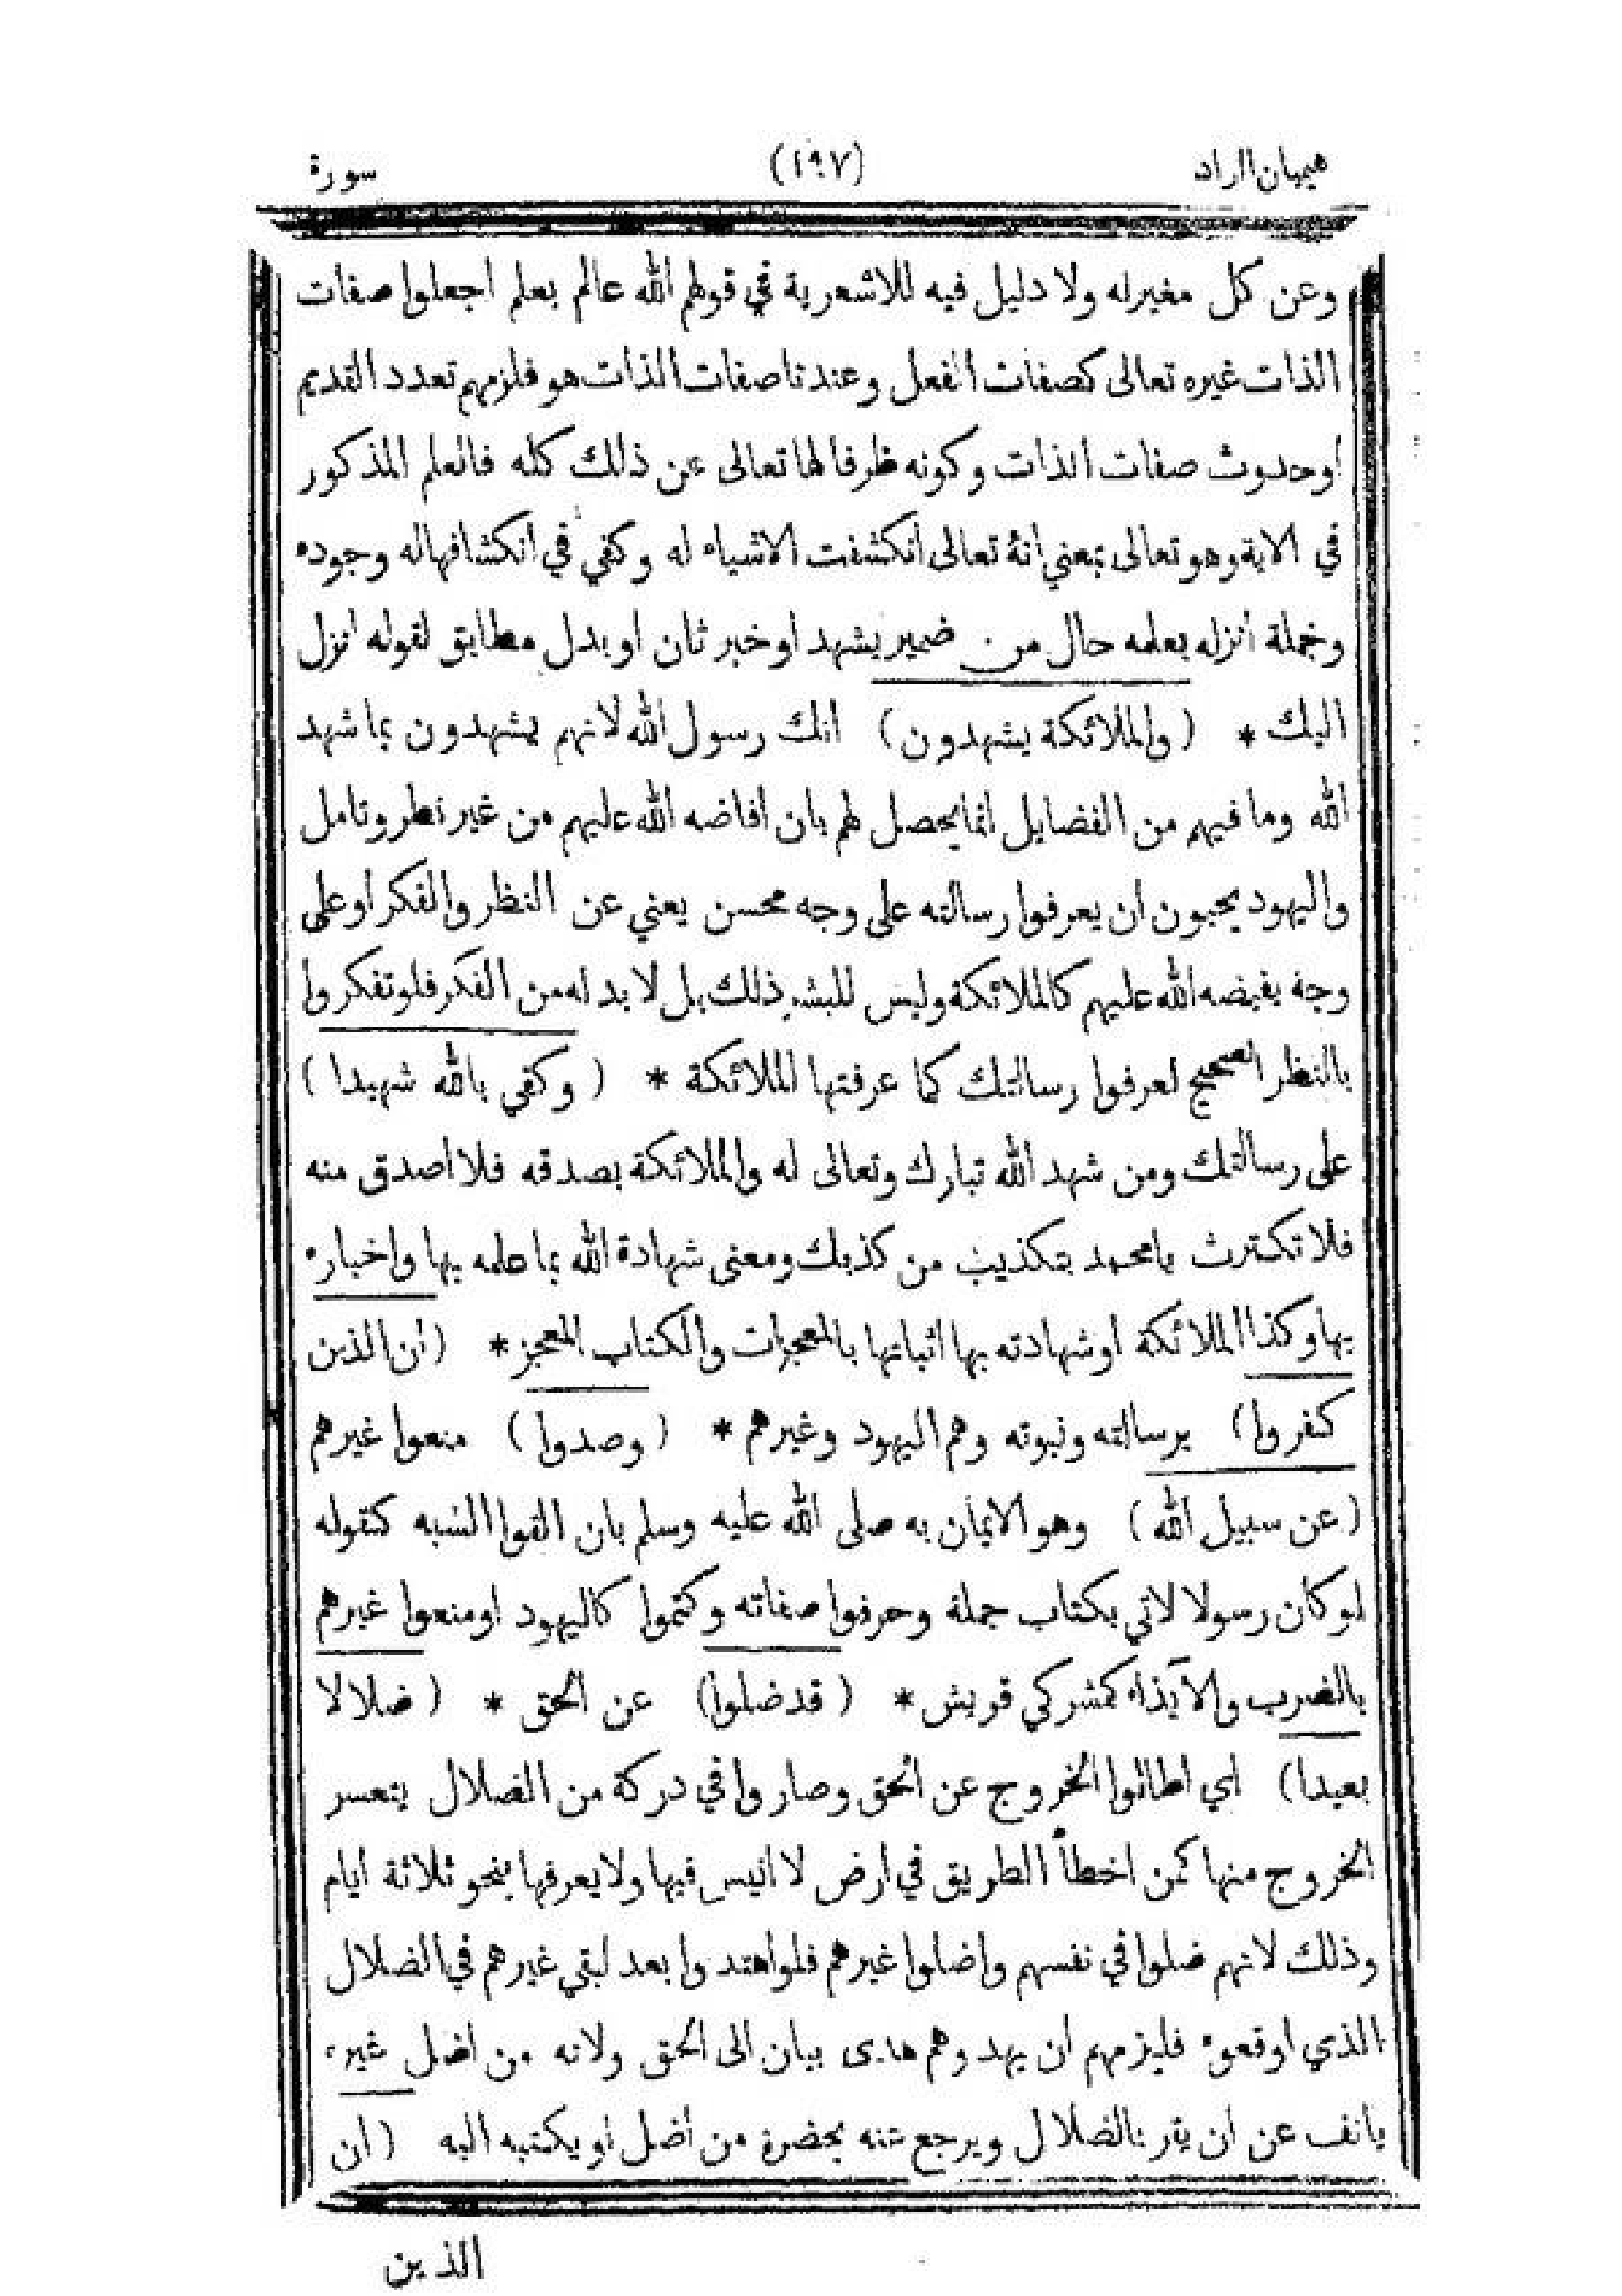 هيميان الزاد (١٩٧) سورة
وعن كل مغيرله ولا دليل فيه للاشعرية في قولهم الله عالم بعلم اجعلوا صفات
الذات غيره تعالى كصفات الفعل وعندنا صفات الذات هو فلزمهم تعدد القديم
اوحدوث صفات الذات وكونه ظرفا لها تعالى عن ذلك كله فالعلم المذكور
في الاية وهو تعالى بمعني انه تعالى انكشفت الاشياء له وكفي في انكشافها له وجوده
وجملة انزله بعلمه حال من ضمير يشهد او خبر ثان او بدل مطابق لقوله انزل
اليك * (والملائكة يشهدون) انك رسول الله لانهم يشهدون بما شهد
الله وما فيهم من الفضايل انما يحصل لهم بان افاضه الله عليهم من غير نظر وتامل
واليهود يحبون ان يعرفوا رسالته على وجه محسن يعني عن النظر والفكر او على
وجه يفيضه الله عليهم كالملائكة وليس للبشر ذلك بل لا بد له من الفكر فلو تفكروا
بالنظر الصحيح لعرفوا رسالتك كما عرفتها الملائكة * (وكفي بالله شهيدا)
على رسالتك ومن شهد الله تبارك وتعالى له والملائكة بصدقه فلا اصدق منه
فلا تكترث يا محمد بتكذيب من كذبك ومعنى شهادة الله بما علمه بها واخباره
بها وكذا الملائكة او شهادته بها اثباتها بالمعجزات والكتاب المعجز * (ان الذين
كفروا) برسالته ونبوته وهم اليهود وغيرهم * (وصدوا) منعوا غيرهم
(عن سبيل الله) وهو الايمان به صلى الله عليه وسلم بان القوا الشبه كقوله
لو كان رسولا لاتي بكتاب جملة وحرفوا صفاته وكتموا كاليهود او منعوا غيرهم
بالضرب والآيذاء كمشركي قريش * (قد ضلوا) عن الحق * (ضلالا
بعيدا) اي اطالوا الخروج عن الحق وصاروا في دركة من الضلال يتعسر
الخروج منها كمن اخطأ الطريق في ارض لا انيس فيها ولا يعرفها بنحو ثلاثة ايام
وذلك لانهم ضلوا في نفسهم واضلوا غيرهم فلو اهتدوا بعد لبقي غيرهم في الضلال
الذي اوقعوه فليزمهم ان يهدوهم هدى بيان الى الحق ولانه من اضل غيره
يانف عن ان يقر بالضلال ويرجع عنه بحضرة من أضل او يكتبه اليه (ان
الذين